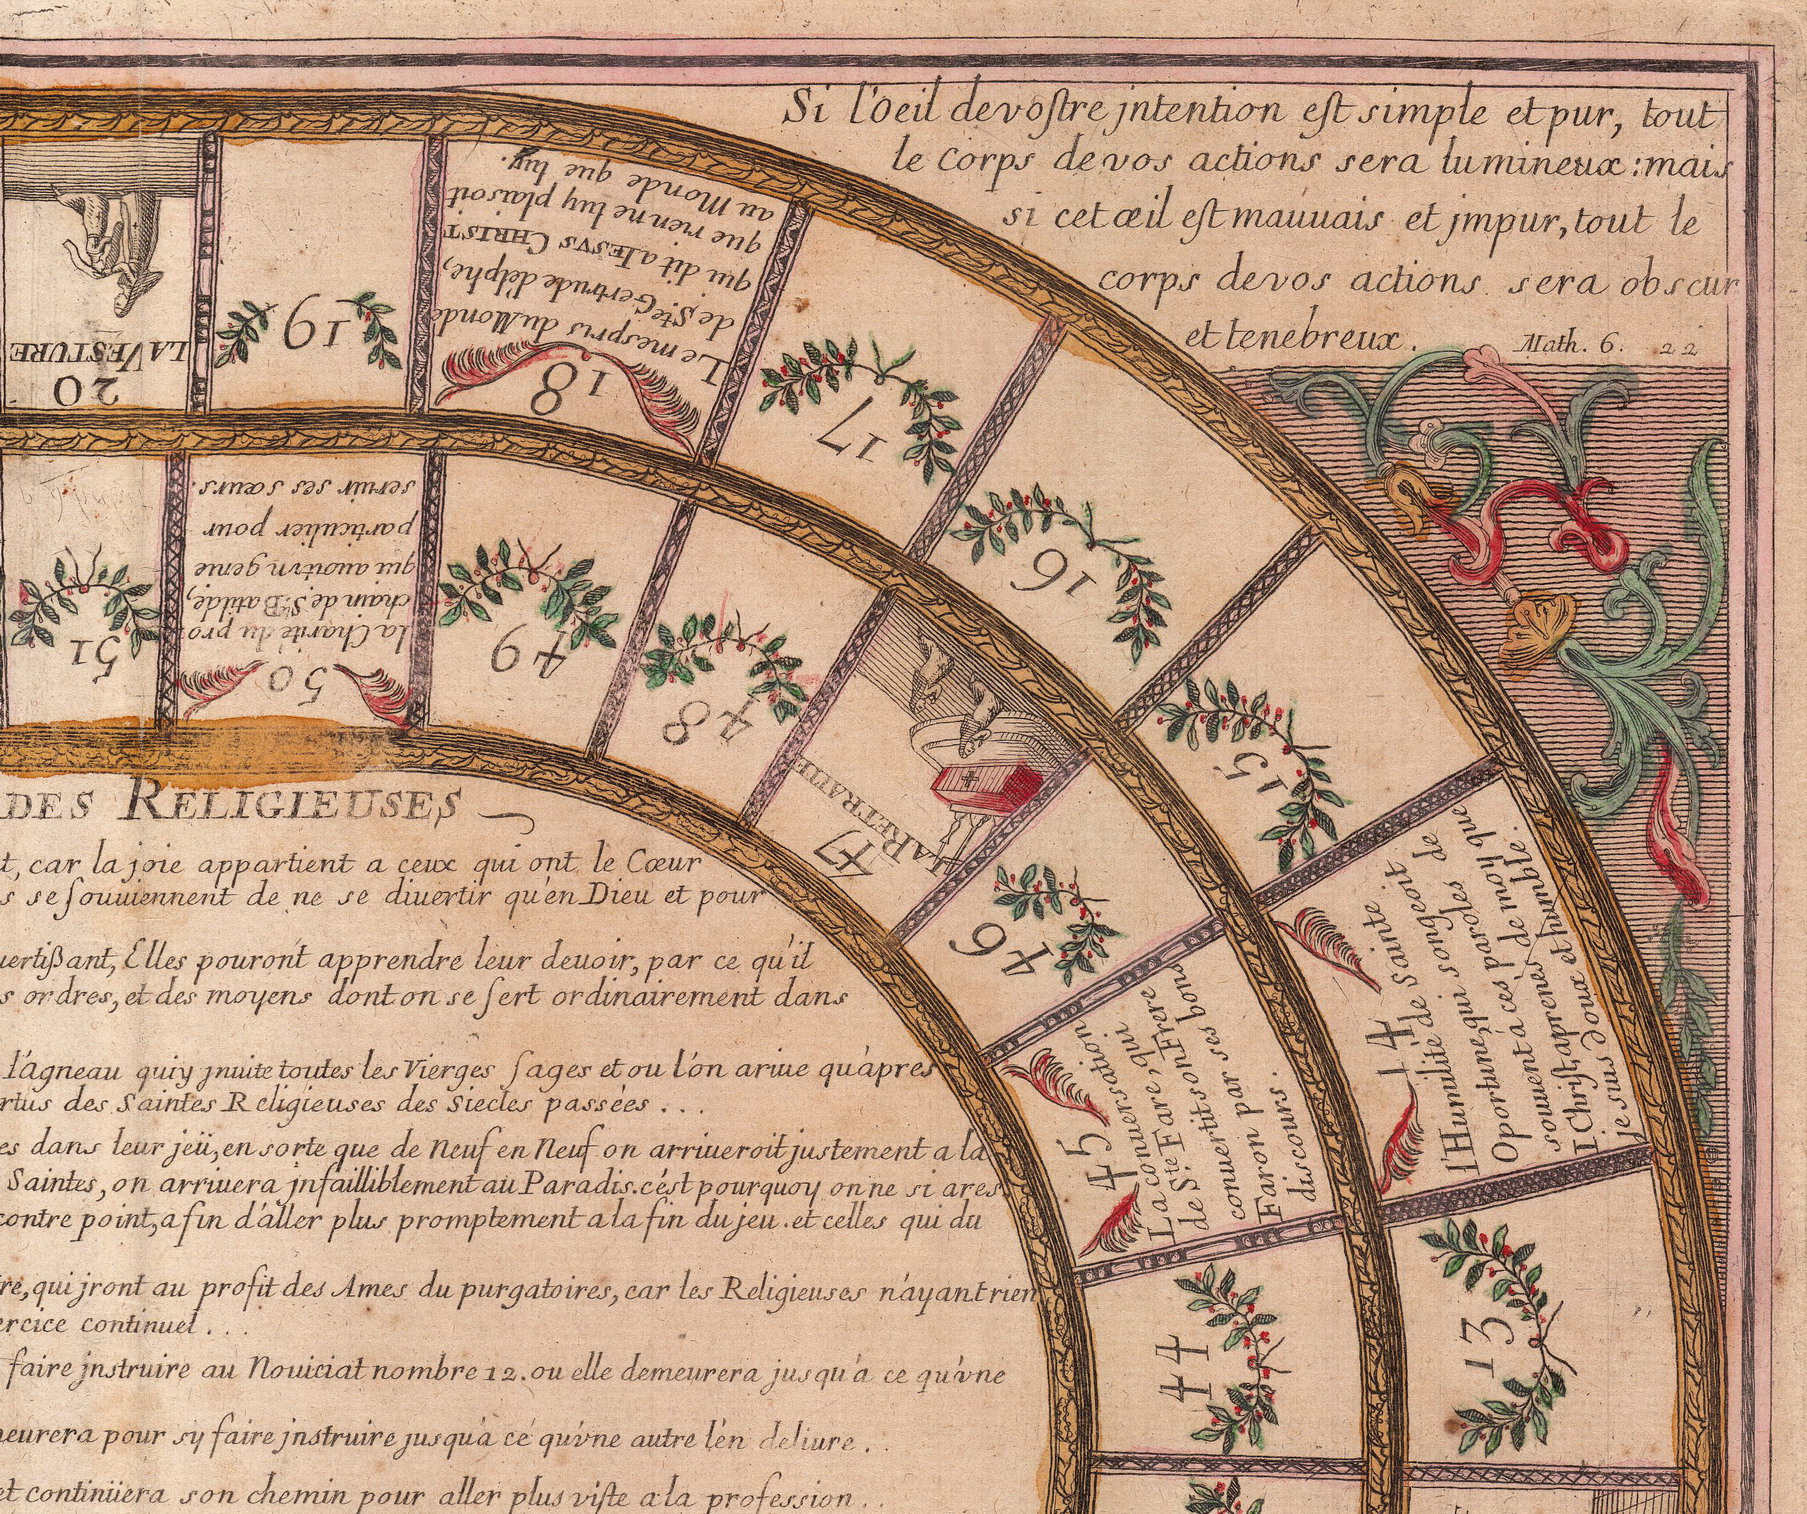 Si l'Oeil devostre jntention est simple et pur, tout
le corps de vos actions sera lumineux : mais
si cet œil est mauuais et jmpur, tout le
corps de vos actions sera obscur
et tenebreux. Math. 6. 22
13
14
l'Humilité de Sainte
Oportune, qui songeoit
souuent à ces paroles de
I Christ, aprenés de moy que
je suis doux et humble.
15
16
17
18
Le mespris du Monde
de Ste Gertrude d'elphe,
qui dit a IESVS CHRIST
que rien ne luy plaisoit
au Monde que luy.
19
20
LA VESTURE
44
45
La conuersation
de Ste Fare, qui
conuertit son Frere
Faron par ses bons
discours.
46
47
LA RETRAITE
48
49
50
la Charité du pro
chain de Ste Batilde,
qui auoit vn genie
particulier pour
seruir ses sœurs.
51
DES RELIGIEUSES
t, car la joie appartient a ceux qui ont le Cœur
s se souuiennent de ne se diuertir qu'en Dieu et pour
uertißant, Elles pouront apprendre leur deuoir, par ce qu'il
s ordres, et des moyens dont on se sert ordinairement dans
l'agneau qui y jnuite toutes les Vierges sages et ou l'on ariue qu'apres
rtus des Saintes Religieuses des Siecles passées . . .
es dans leur jeü, en sorte que de Neuf en Neuf on arriueroit justement a la
Saintes, on arriuera jnfailliblement au Paradis. c'est pourquoy on ne si ares
contre point, afin d'aller plus promptement a la fin du jeu . et celles qui du
re, qui jront au profit des Ames du purgatoires, car les Religieuses n'ayant rien
ercice continuel . . .
faire jnstruire au Nouiciat nombre 12. ou elle demeurera jusqu'a ce qu'vne
meurera pour sy faire jnstruire jusqu'a cé qu'vne autre l'en deliure . .
et continüera son chemin pour aller plus viste a la profession . .